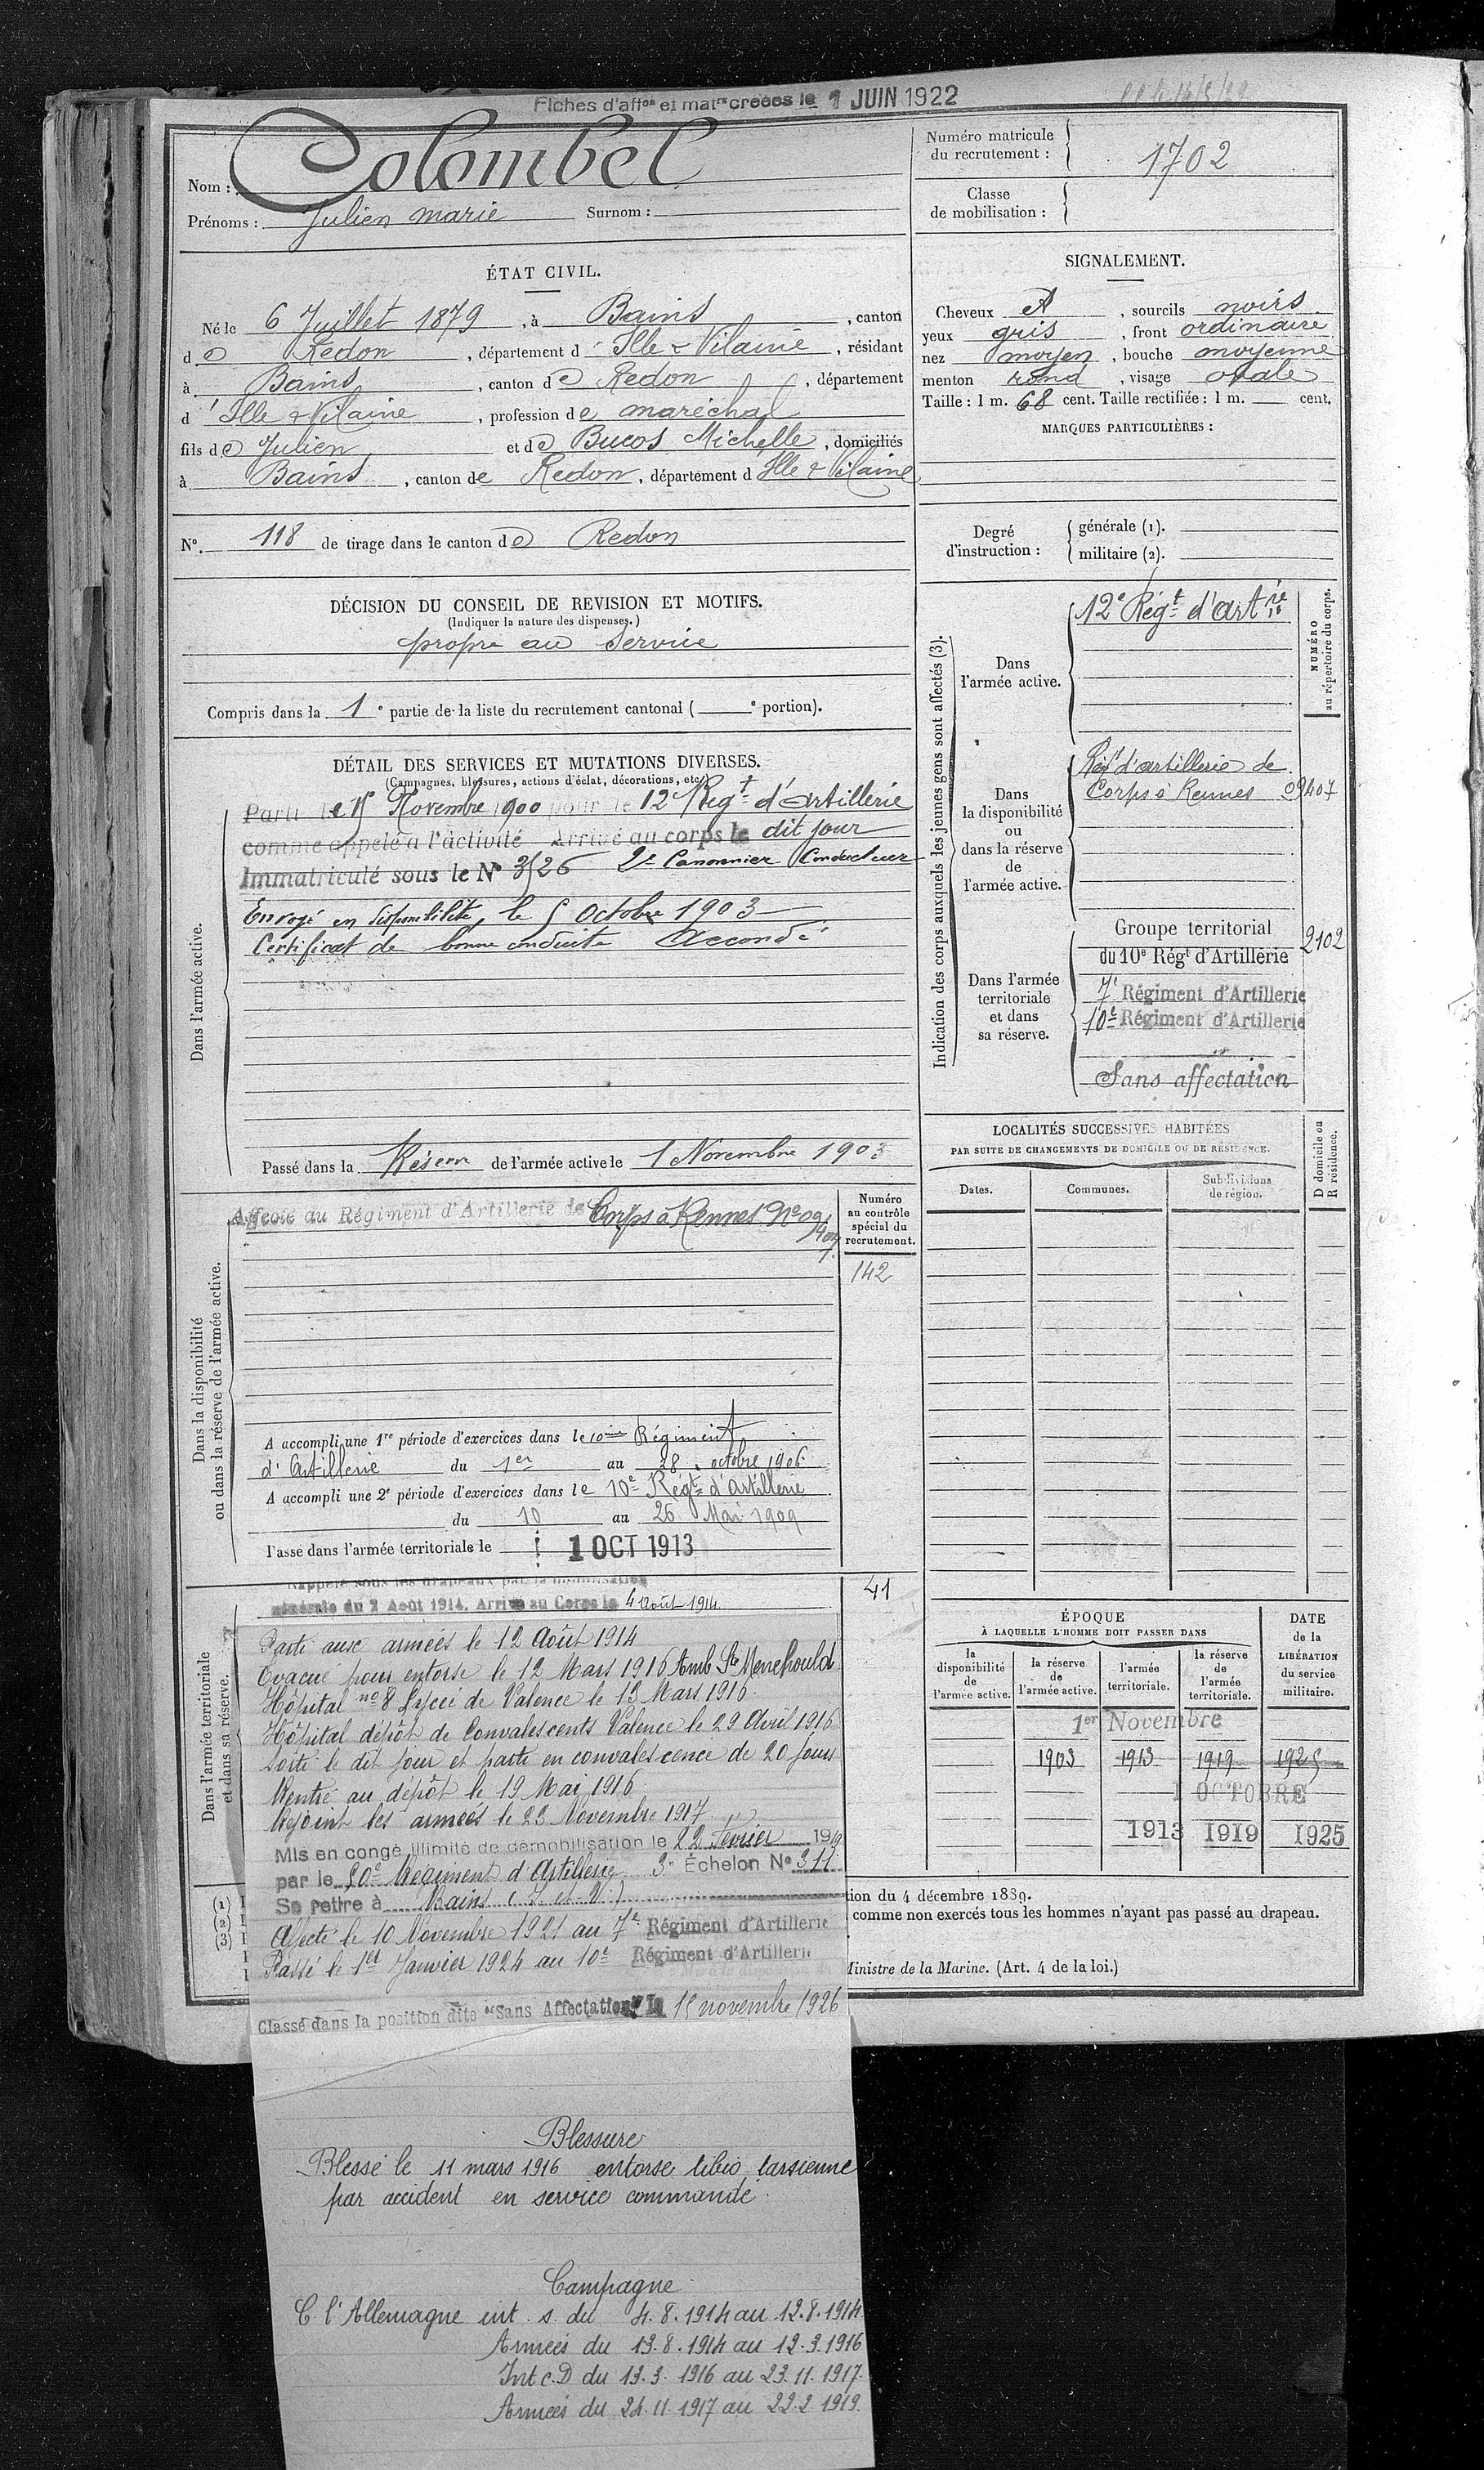 Fiches d'affon et matre creées le 1 JUIN 1922
Nom : Colombel
Prénoms : Julien marie Surnom :
Numéro matricule
du recrutement : 1702
Classe
de mobilisation :
ÉTAT CIVIL.
Né le 6 Juillet 1879, à Bains, canton
de Redon, département d'Ille & Vilaine, résidant
à Bains, canton de Redon, département
d'Ille & Vilaine, profession de maréchal
fils de Julien et de Bucos Michelle, domiciliés
à Bains, canton de Redon, département d Ille & Vilaine
N°. 118 de tirage dans le canton de Redon
SIGNALEMENT.
Cheveux et, sourcils noirs
yeux gris, front ordinaire
nez moyen, bouche moyenne
menton rond, visage ovale
Taille : 1 m. 68 cent. Taille rectifiée : 1 m. cent.
MARQUES PARTICULIÈRES :
Degré
d'instruction :
générale (1).
militaire (2).
DÉCISION DU CONSEIL DE REVISION ET MOTIFS.
(Indiquer la nature des dispenses.)
propre au service
Compris dans la 1e partie de la liste du recrutement cantonal ( e portion).
DÉTAIL DES SERVICES ET MUTATIONS DIVERSES.
(Campagnes, blessures, actions d'éclat, décorations, etc.)
Dans l'armée active.
Parti le 15 Novembre 1900 pour le 12e Régt d'Artillerie
comme appelé à l'activité Arrivé au corps le dit jour
Immatriculé sous le N° 3526 2e Canonnier Conducteur
Envoyé en disponibilité, le 5 octobre 1903
Certificat de bonne conduite Accordé
Passé dans la Réserve de l'armée active le 1 Novembre 1903
Indication des corps auxquels les jeunes gens sont affectés (3).
NUMÉRO
au répertoire du corps.
Dans
l'armée active.
12e Régt d'artrie
Dans
la disponibilité
ou
dans la réserve
de
l'armée active.
Régt d'artillerie de
Corps à Rennes 09407
Dans l'armée
territoriale
et dans
sa réserve.
Groupe territorial
du 10e Régt d'Artillerie 2102
7e Régiment d'Artillerie
10e Régiment d'Artillerie
Sans affectation
Dans la disponibilité
ou dans la réserve de l'armée active.
Affecté au Régiment d'Artillerie de Corps à Rennes No 09407
Numéro
au contrôle
spécial du
recrutement.
142
A accompli une 1re période d'exercices dans le 10ème Régiment
d'Artillerie du 1er au 28 octobre 1906
A accompli une 2e période d'exercices dans le 10e Régt d'artillerie
du 10 au 26 Mai 1909
Passé dans l'armée territoriale le 1 OCT 1913
LOCALITÉS SUCCESSIVES HABITÉES
PAR SUITE DE CHANGEMENTS DE DOMICILE OU DE RÉSIDENCE.
D domicile ou
R résidence.
Dates. Communes. Subdivisions
de région.
Dans l'armée territoriale
et dans sa réserve.
Rappelé sous les drapeaux par la mobilisation
générale du 2 Août 1914. Arrivé au Corps le 4 Août 1914
41
Parti aux armées le 12 Août 1914
Evacué pour entorse le 12 Mars 1916 Amb Ste Menehould
Hôpital no 8 Lycée de Valence le 13 Mars 1916
Hôpital dépôt de Convalescents Valence le 29 Avril 1916
Sorti le dit jour et parti en convalescence de 20 jours
Rentré au dépôt le 19 Mai 1916
Rejoint les armées le 23 Novembre 1917
Mis en congé illimité de démobilisation le 22 Février 1919
par le 50e Régiment d'Artillerie 3e Échelon N° 311
Se retire à Bains (I et V)
Affecté le 10 Novembre 1921 au 7e Régiment d'Artillerie
Passé le 1er Janvier 1924 au 10e Régiment d'Artillerie
Classé dans la position dite "Sans Affectation" le 15 novembre 1926
ÉPOQUE
À LAQUELLE L'HOMME DOIT PASSER DANS
DATE
de la
LIBÉRATION
du service
militaire.
la
disponibilité
de
l'armée active.
la réserve
de
l'armée active.
l'armée
territoriale.
la réserve
de
l'armée
territoriale.
1er Novembre
1903 1913 1919 1925
1 OCTOBRE
1913 1919 1925
(1)
(2)
(3)
tion du 4 décembre 1889.
comme non exercés tous les hommes n'ayant pas passé au drapeau.
Ministre de la Marine. (Art. 4 de la loi.)
Blessure
Blessé le 11 mars 1916 entorse tibio tarsienne
par accident en service commandé
Campagne
C. l'Allemagne int. s. du 4.8.1914 au 12.8.1914
Armées du 13.8.1914 au 12.3.1916
Int c.D du 13.3.1916 au 23.11.1917
Armées du 24.11.1917 au 22.2.1919